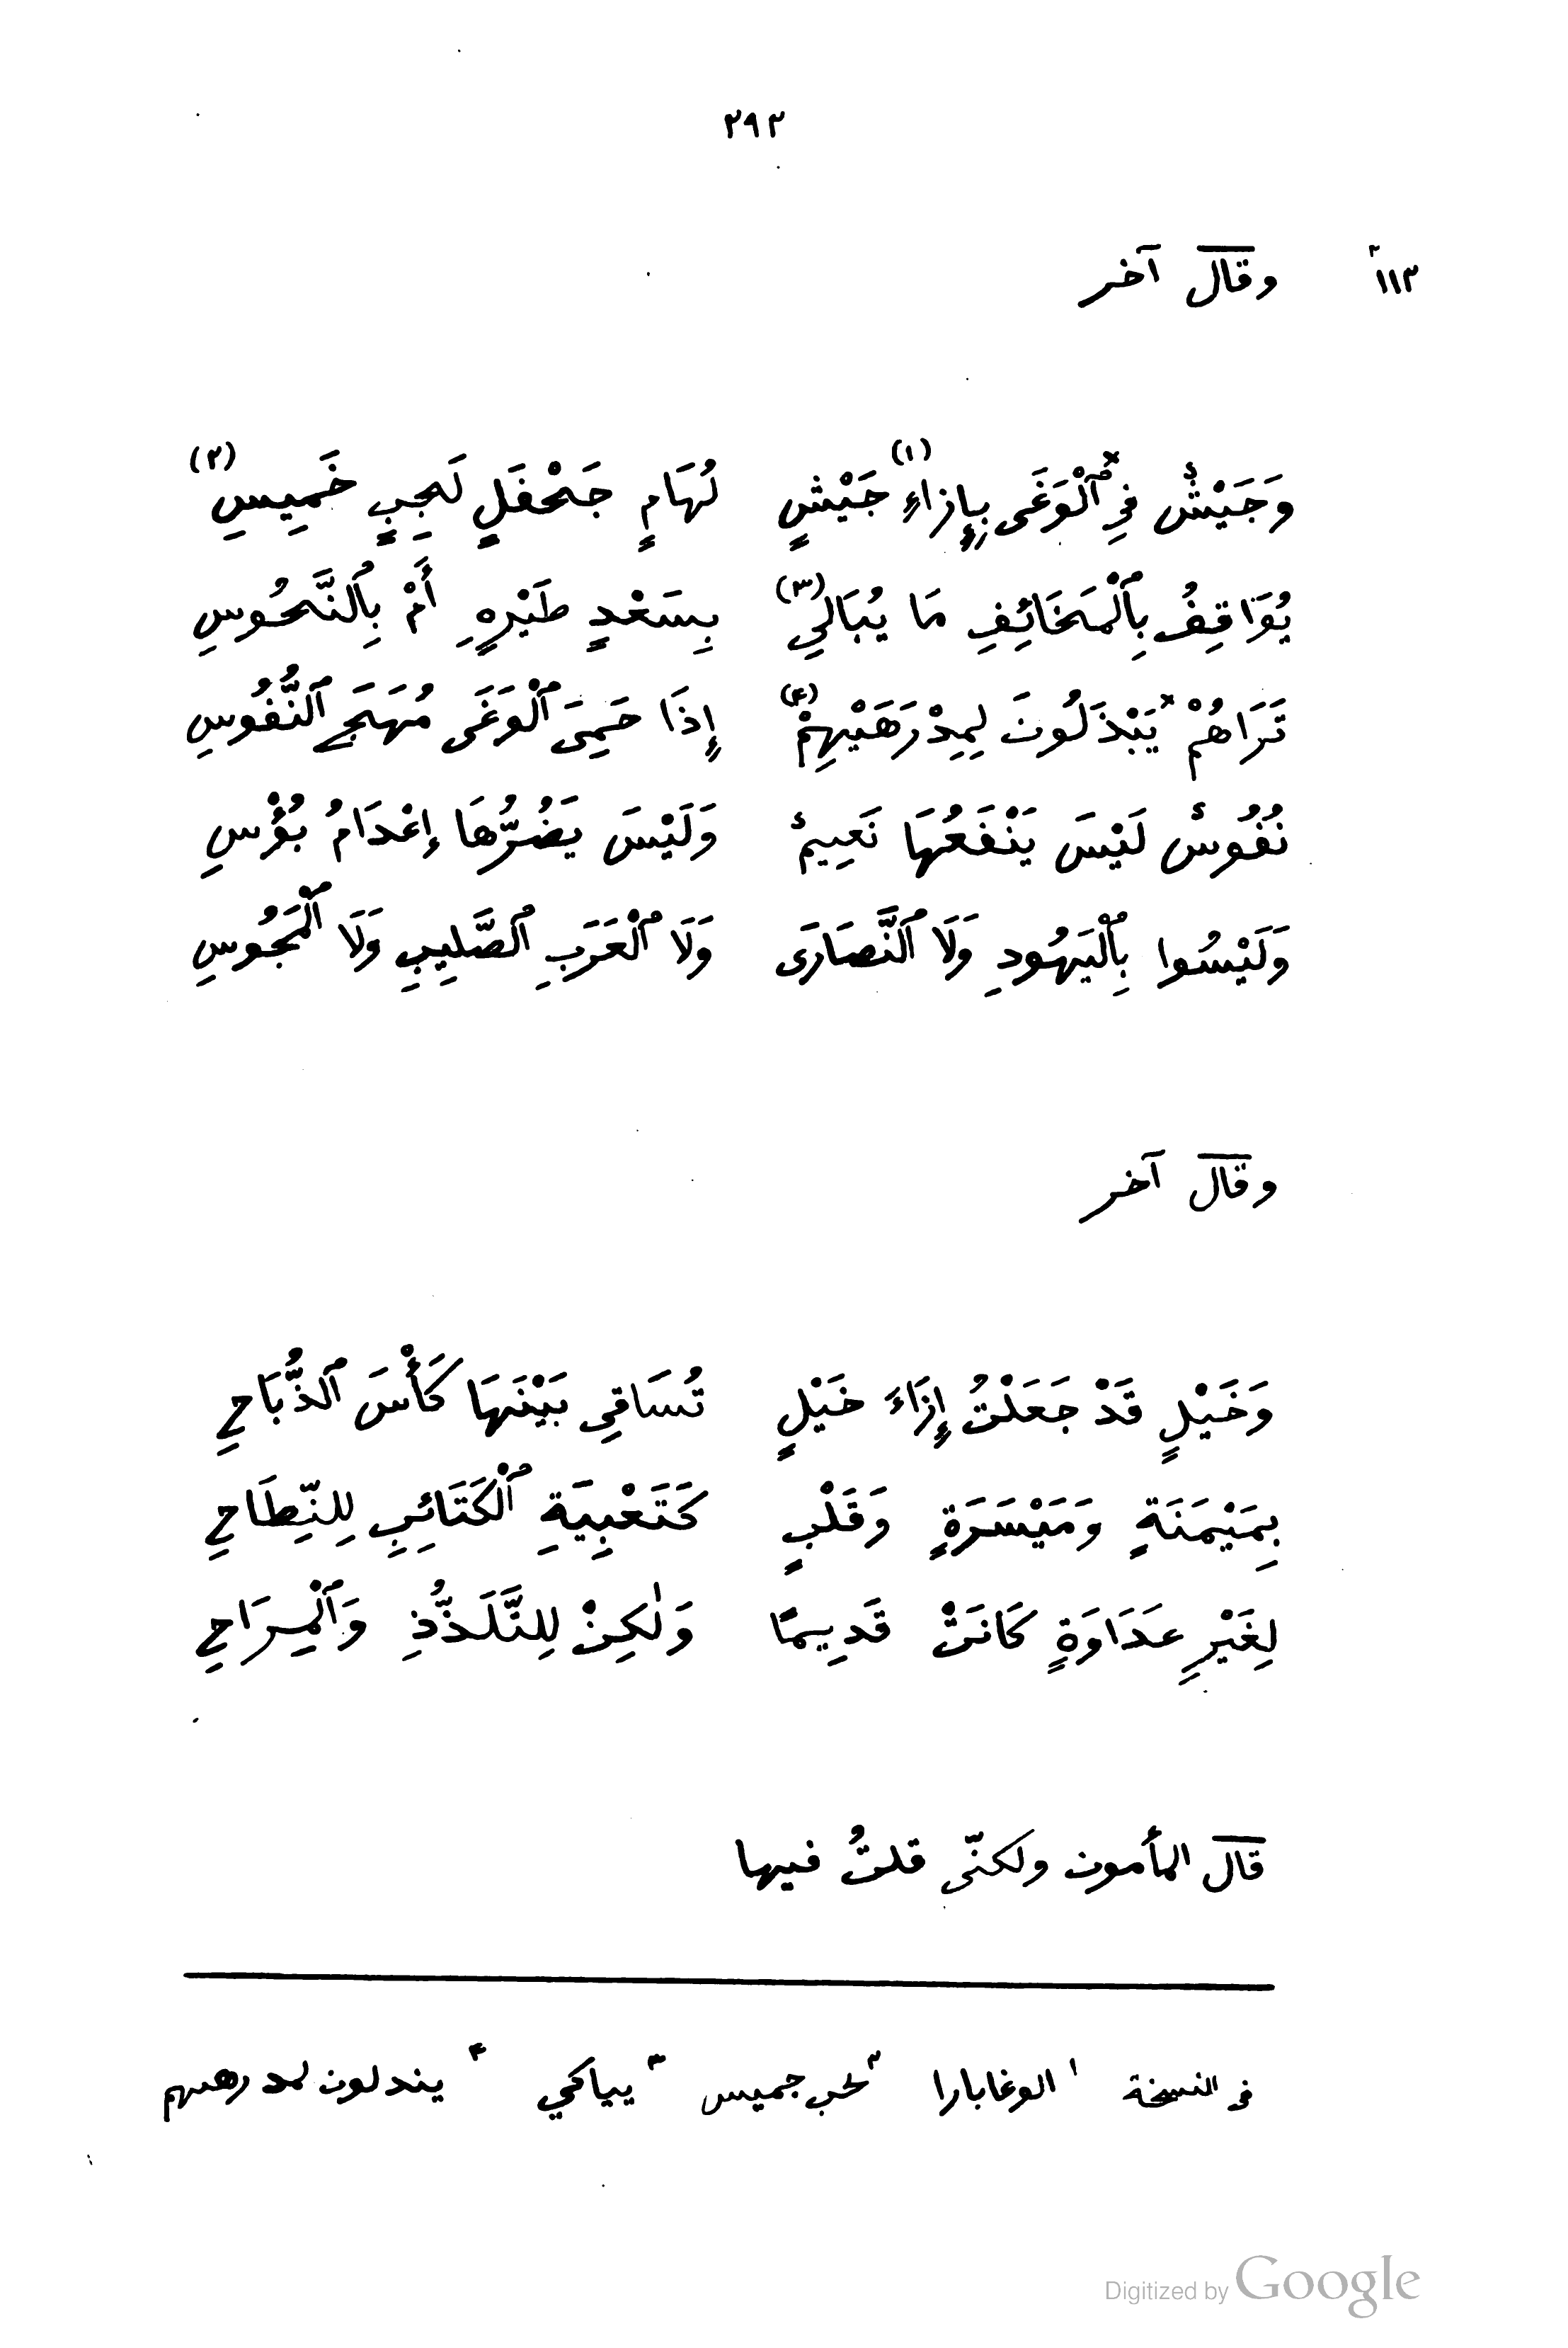 ٢٩٢
١١٢ ٢ وقال آخر
وَجَيْشٌ فِي ٱلْوَغَى بِإِزاءِ (١) جَيْشٍ لُهَامٍ جَحْفَلٍ لَجِبٍ خَمِيسِ (٢)
يُوَاقِفُ بِٱلْمَخَائِفِ مَا يُبَالِي (٣) بِسَعْدٍ طَيْرِهِ أَمْ بِٱلنَّحُوسِ
تَرَاهُمْ يَبْذَلُونَ لِمِدْرَهَيْهِمْ (٤) إِذَا حَمِىَ ٱلْوَغَى مُهَجَ ٱلنُّفُوسِ
نُفُوسٌ لَيْسَ يَنْفَعُهَا نَعِيمٌ وَلَيْسَ يَضُرُّهَا إِعْدَامُ بُؤْسِ
وَلَيْسُوا بِٱلْيَهُودِ وَلَا ٱلنَّصَارَى وَلَا ٱلْعَرَبِ ٱلصَّلِيبِ وَلَا ٱلْمَجُوسِ
وقال آخر
وَخَيْلٍ قَدْ جَعَلْتُ إِزَاءَ خَيْلٍ تُسَاقِى بَيْنَهَا كَأْسَ ٱلذُّبَاحِ
بِمَيْمَنَةٍ وَمَيْسَرَةٍ وَقَلْبٍ كَتَعْبِيَةِ ٱلْكَتَائِبِ لِلنِّطَاحِ
لِغَيْرِ عَدَاوَةٍ كَانَتْ قَدِيمًا وَلٰكِنْ لِلتَّلَذُّذِ وَٱلْمِرَاحِ
قال المأمون ولكنّى قلتُ فيها
فى النسخة ١ الوغابارا ٢ لحب جميس ٣ يياكي ٤ يندلون لمدرههم
Digitized by Google